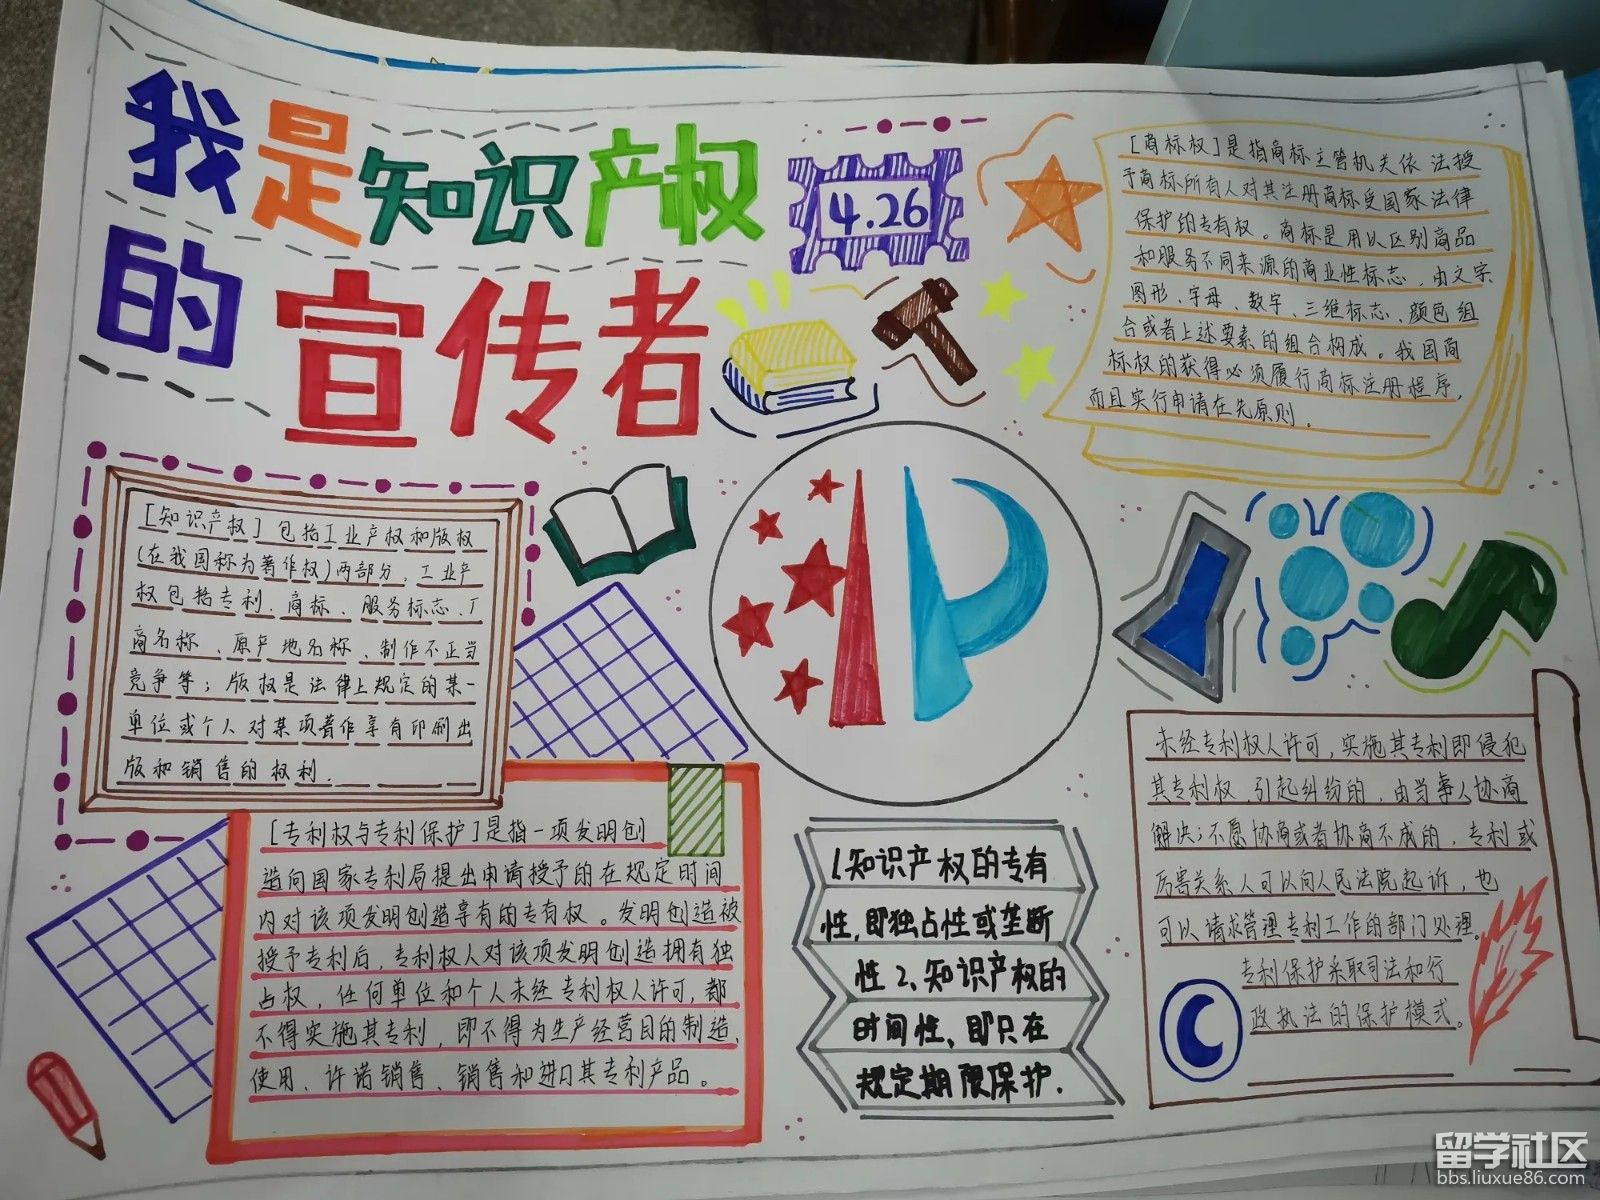 我是知识产权
的宣传者
4.26
[商标权]是指商标主管机关依法授
予商标所有人对其注册商标受国家法律
保护的专有权。商标是用以区别商品
和服务不同来源的商业性标志,由文字
图形、字母、数字、三维标志、颜色组
合或者上述要素的组合构成。我国商
标权的获得必须履行商标注册程序,
而且实行申请在先原则.
[知识产权]包括工业产权和版权
(在我国称为著作权)两部分,工业产
权包括专利、商标、服务标志、厂
商名称、原产地名称、制作不正当
竞争等;版权是法律上规定的某一
单位或个人对某项著作享有印刷出
版和销售的权利.
IP
[专利权与专利保护]是指一项发明创
造向国家专利局提出申请授予的在规定时间
内对该项发明创造享有的专有权。发明创造被
授予专利后,专利权人对该项发明创造拥有独
占权,任何单位和个人未经专利权人许可,都
不得实施其专利,即不得为生产经营目的制造、
使用、许诺销售、销售和进口其专利产品。
1.知识产权的专有
性,即独占性或垄断
性2、知识产权的
时间性、即只在
规定期限保护.
未经专利权人许可,实施其专利即侵犯
其专利权,引起纠纷的,由当事人协商
解决;不愿协商或者协商不成的,专利或
厉害关系人可以向人民法院起诉,也
可以请求管理专利工作的部门处理。
专利保护采取司法和行
政执法的保护模式。
留学社区
bbs.liuxue86.com